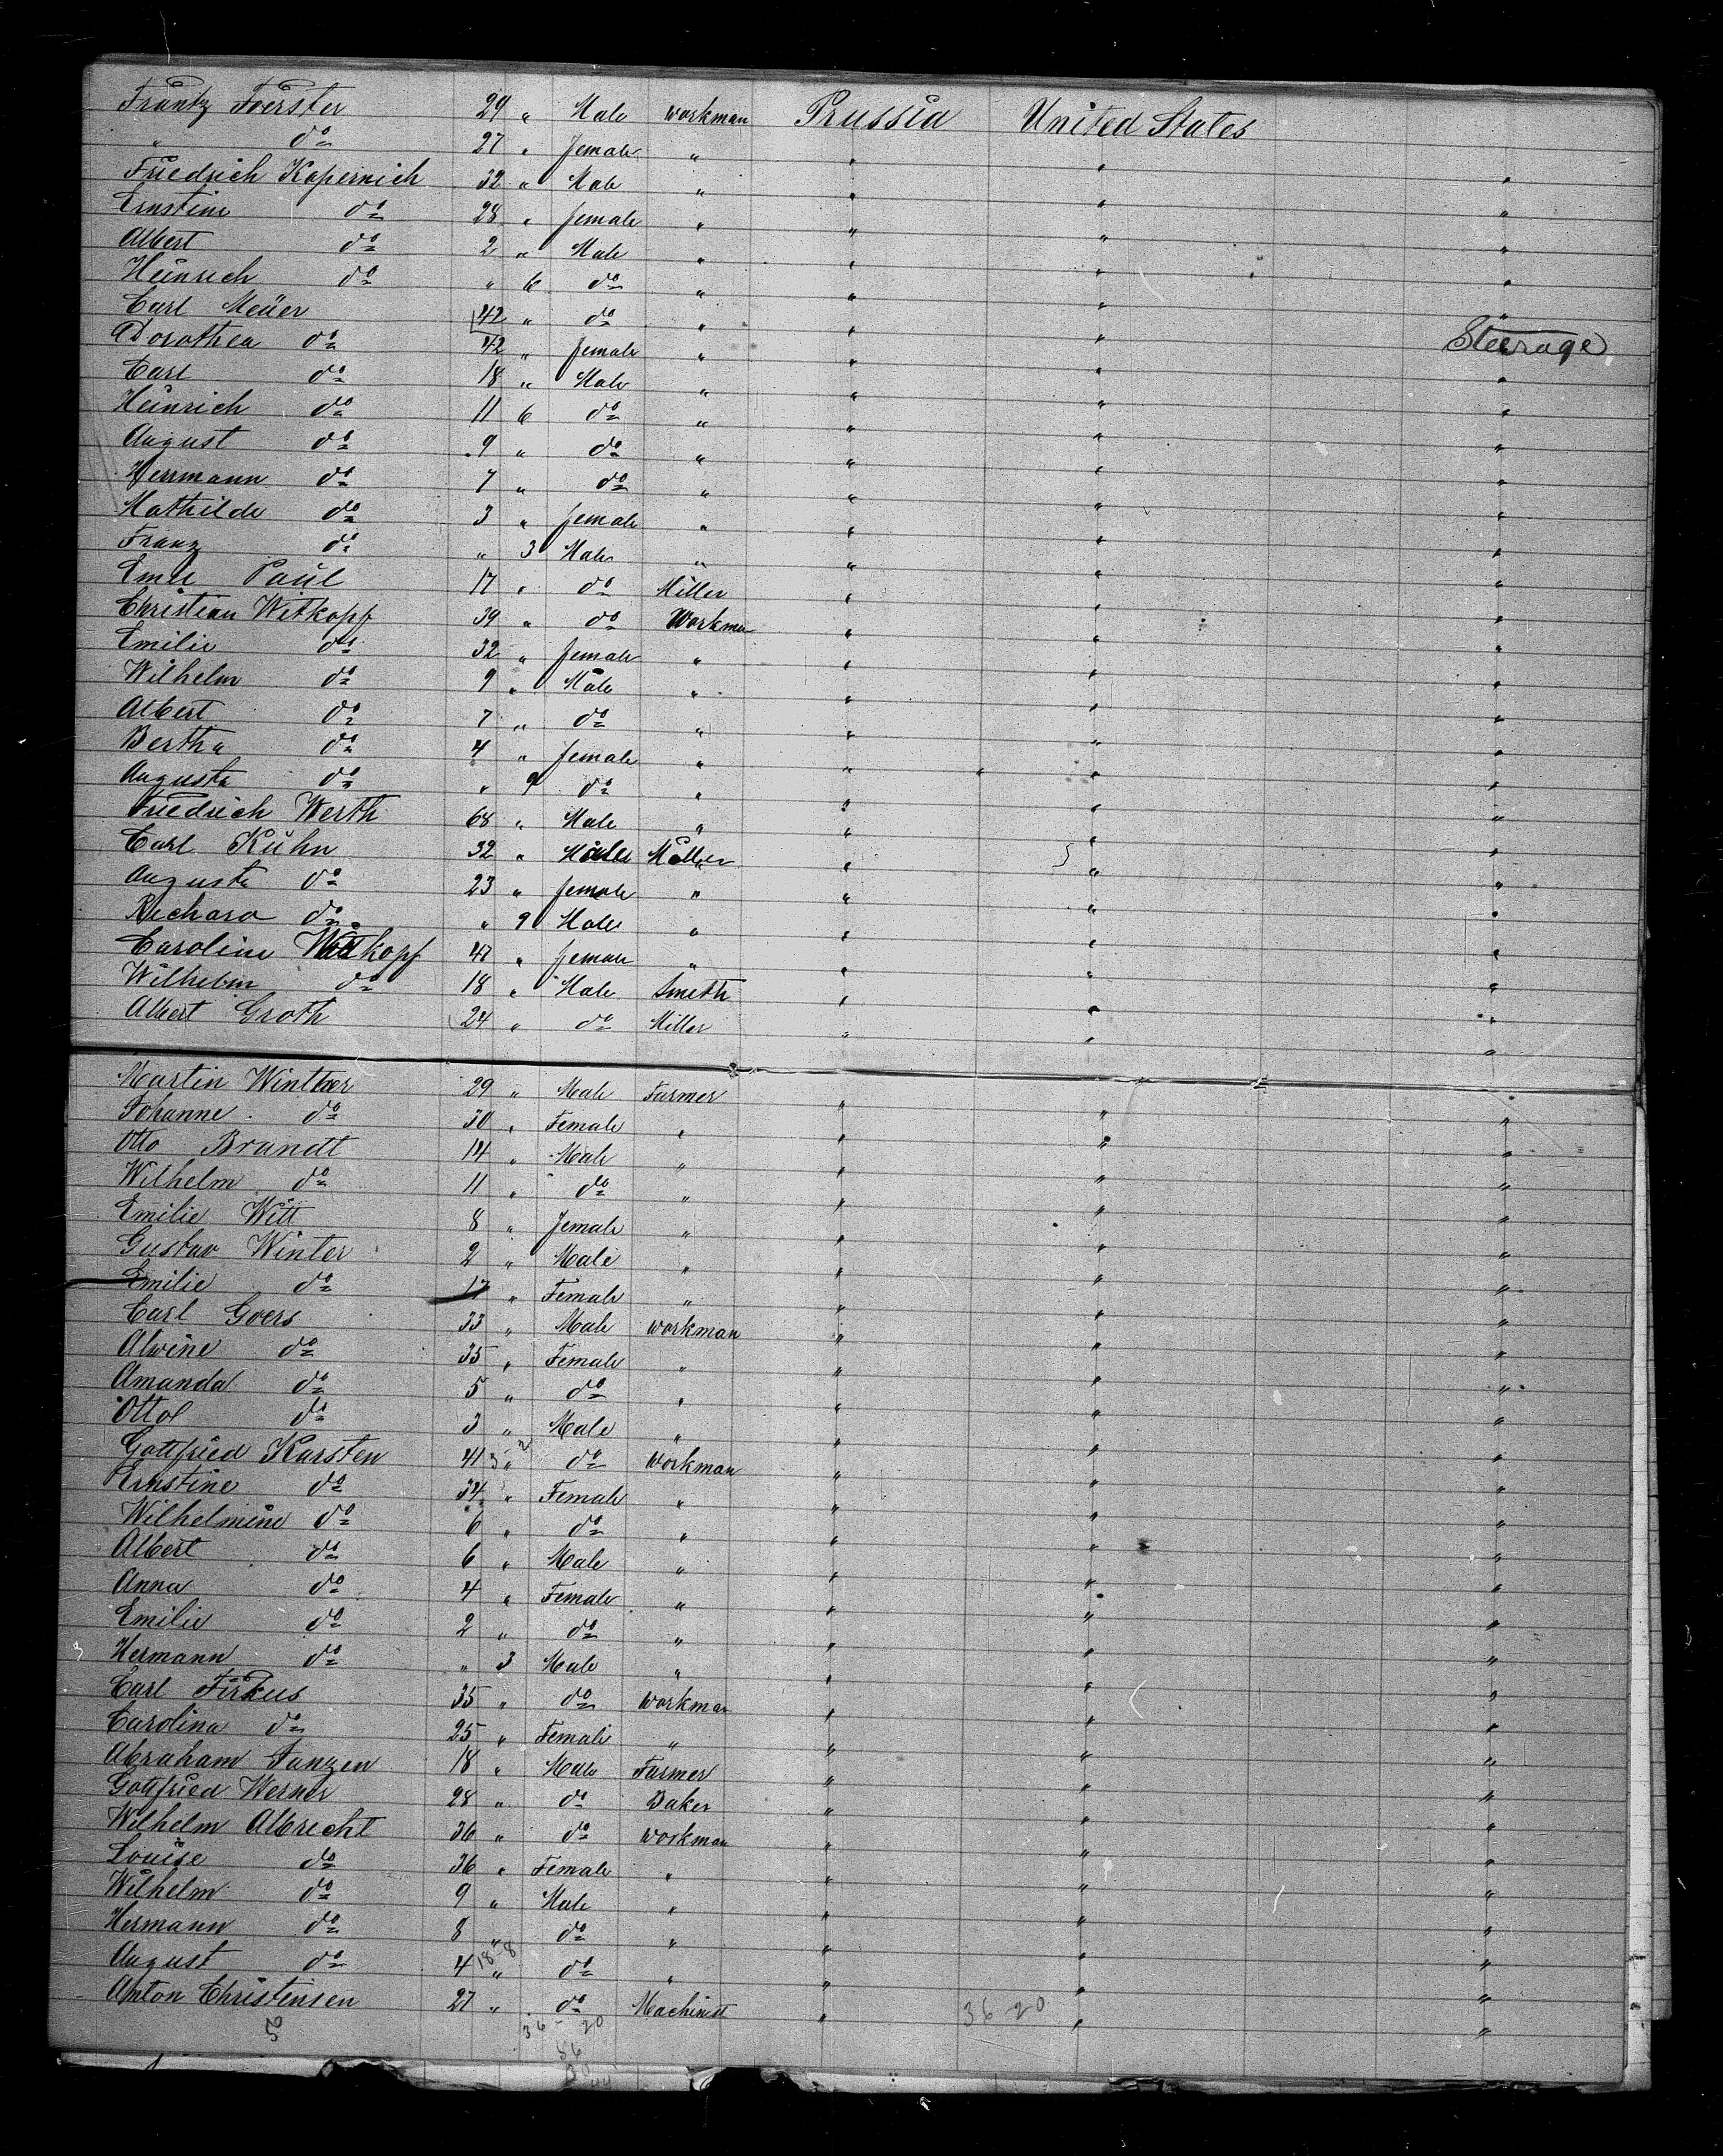 Frantz Foerster 29 " Male workman Prussia United States
" do 27 " female " " "
Friedrich Kopernich 32 " Male " " " "
Ernstine do 28 " female " " " "
Albert do 2 " Male " " " "
Heinrich do " 6 do " " " "
Carl Meüer 42 " do " " " "
Dorothea do 42 " female " " " Steerage
Carl do 18 " Male " " " "
Heinrich do 11 6 do " " " "
August do 9 " do " " " "
Herrmann do 7 " do " " " "
Mathilde do 3 " female " " " "
Franz do " 3 Male " " " "
Paul 17 " do Miller " " "
Christian Witkopf 39 " do Workman " " "
Emilie do 32 " female " " " "
Wilhelm do 9 " Male " " " "
Albert do 7 " do " " " "
Bertha do 4 " female " " " "
Augusta do " 9 do " " " "
Friedrich Werth 68 " Male " " " "
Carl Kühn 32 " Male Miller " " "
Augusta do 23 " female " " " "
Richard do " 9 Male " " " "
Caroline Witkopf 47 " female " " " "
Wilhelm do 18 " Male Smeth " " "
Albert Groth 24 " do Miller " " "
Martin Winther 29 " Male Farmer " " "
Johanne do 30 " Female " " " "
Otto Brandt 14 " Male " " " "
Wilhelm do 11 " do " " " "
Emilie Witt 8 " female " " " "
Gustav Winter 2 " Male " " " "
Emilie do 17 " Female " " " "
Carl Goers 33 " Male workman " " "
Alwine do 35 " Female " " " "
Amanda do 5 " do " " " "
Otto do 3 " Male " " " "
Gottfried Karsten 41 " do workman " " "
Ernstine do 34 " Female " " " "
Wilhelmine do 6 " do " " " "
Albert do 6 " Male " " " "
Anna do 4 " Female " " " "
Emilie do 2 " do " " " "
Hermann do " 3 Male " " " "
Carl Firkus 35 " do workman " " "
Carolina do 25 " Female " " " "
Abraham Janzen 18 " Male Farmer " " "
Gottfried Werner 28 " do Baker " " "
Wilhelm Albrecht 36 " do workman " " "
Louise do 36 " Female " " " "
Wilhelm do 9 " Male " " " "
Hermann do 8 " do " " " "
August do 4 18-8 " do " " " "
Anton Christensen 27 " do Machinist " " "
36-20 36-20
56